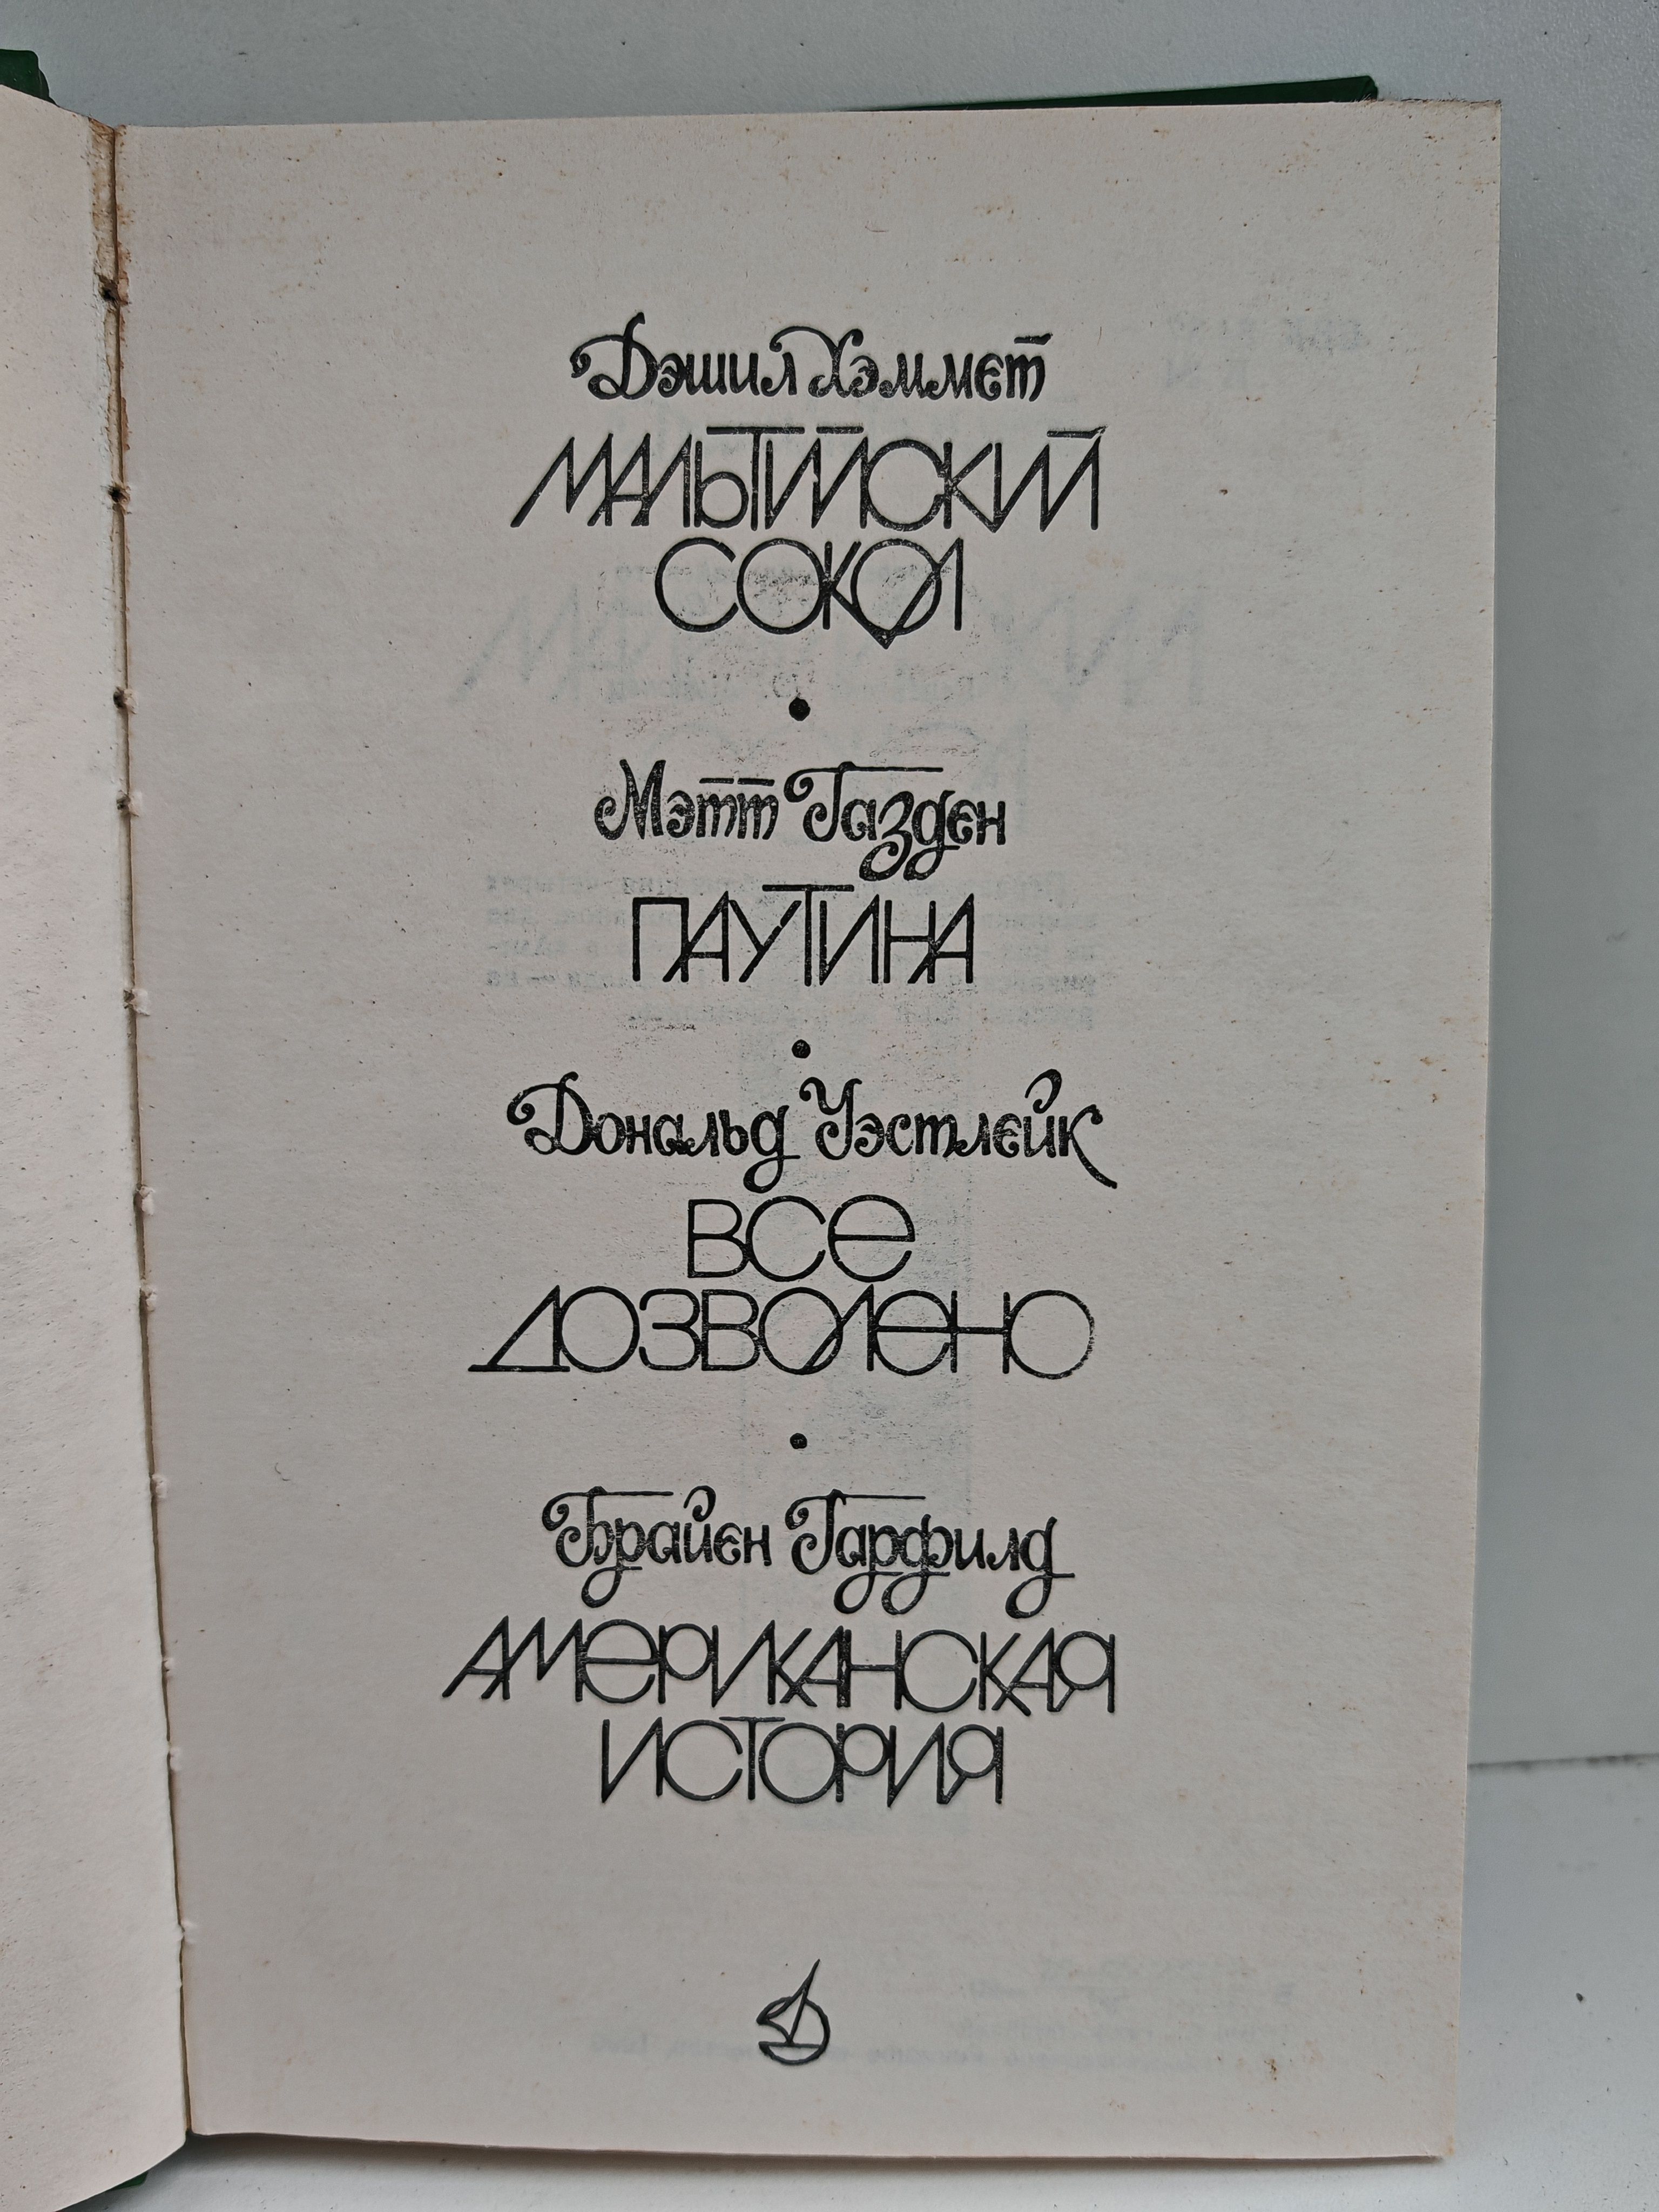 Дэшил Хэммет
МАЛЬТИЙСКИЙ
СОКОЛ
•
Мэтт Газден
ПАУТИНА
•
Дональд Уэстлейк
ВСЕ
ДОЗВОЛЕНО
•
Брайен Гарфилд
АМЕРИКАНСКАЯ
ИСТОРИЯ